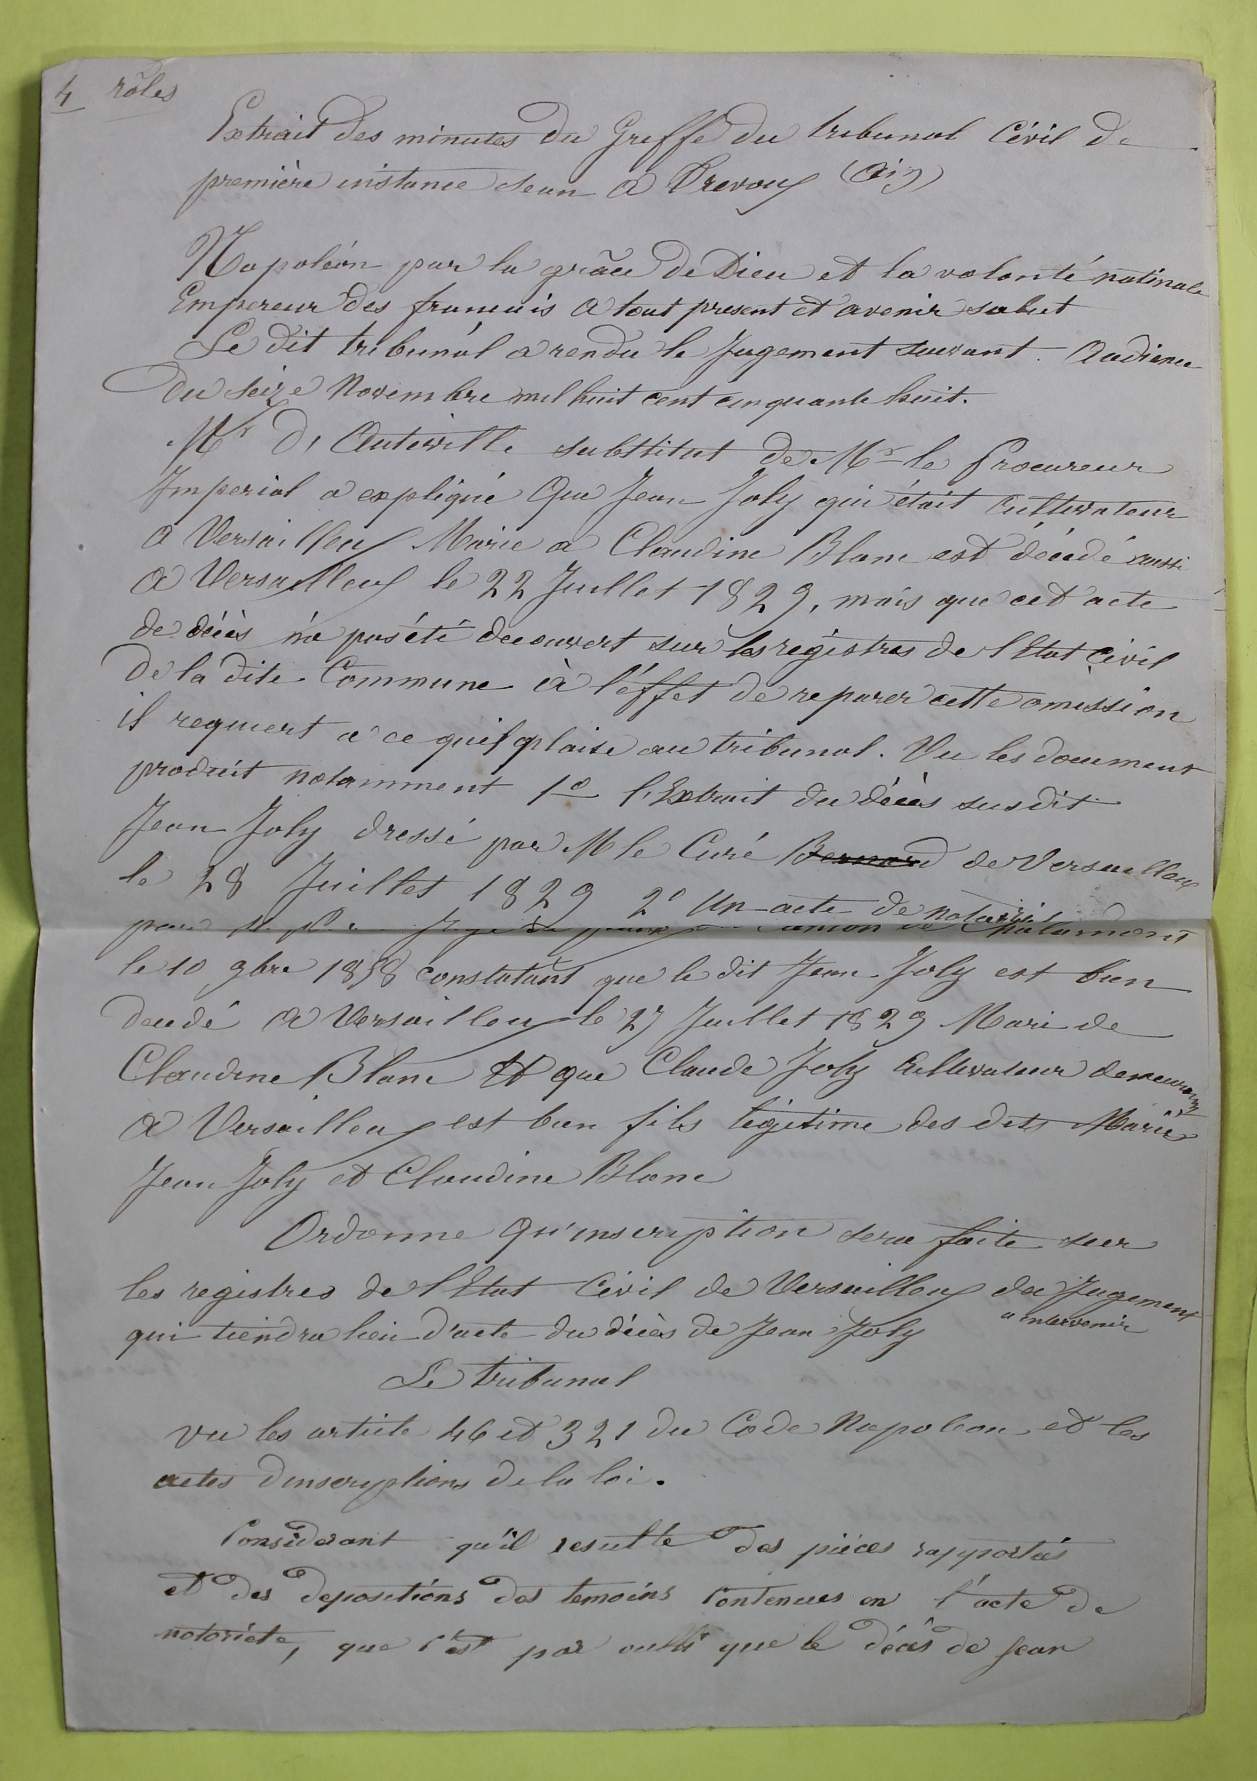 4 rôles
Extrait des minutes du Greffe du tribunal Civil de
première instance sean a Trevoux (Ain)
Napoléon par la grâce de Dieu et la volonté natinale
Empereur des francais a tout present et avenir salut
Le dit tribunal a rendu le Jugement suivant. Audience
du seize Novembre mil huit cent cinquante huit.
Mr D' Auteville substitut de Mr le Procureur
Imperial a expliqué que Jean Joly qui était cultivateur
a Versailleux Marie a Claudine Blanc est décedé aussi
a Versailleux le 22 Juillet 1829, mais que cet acte
de décès n'a pas été decouvert sur les registres de l'Etat Civil
de la dite Commune à l'éffet de reparer cette omission
il requiert a ce quil plaise au tribunal. Vu les document
produit notamment 1o l'Extrait du décès susdit
Jean Joly dressé par M le Curé Bernard de Versailleux
le 28 Juillet 1829 2o Un acte de notoriété
par canton de Chalamont
le 10 9bre 1858 constatant que le dit Jean Joly est bien
decedé a Versailleux le 27 Juillet 1829 Mari de
Claudine Blanc Et que Claude Joly Cultivateur demeurant
a Versailleux est bien fils légitime des dits Mariés
Jean Joly et Claudine Blanc
Ordonne qu'inscription sera faite sur
les registres de l'Etat Civil de Versailleux du Jugement
a intervenir
qui tiendra lieu d'acte du décès de Jean Joly
Le tribunal
vu les article 46 et 321 du Code Napoleon, et les
actes d'inscriptions de la loi.
Considerant qu'il resulte des pièces rapportés
et des depositions des temoins Contenues en l'acte de
notoriete, que c'est par oubli que le décès de Jean